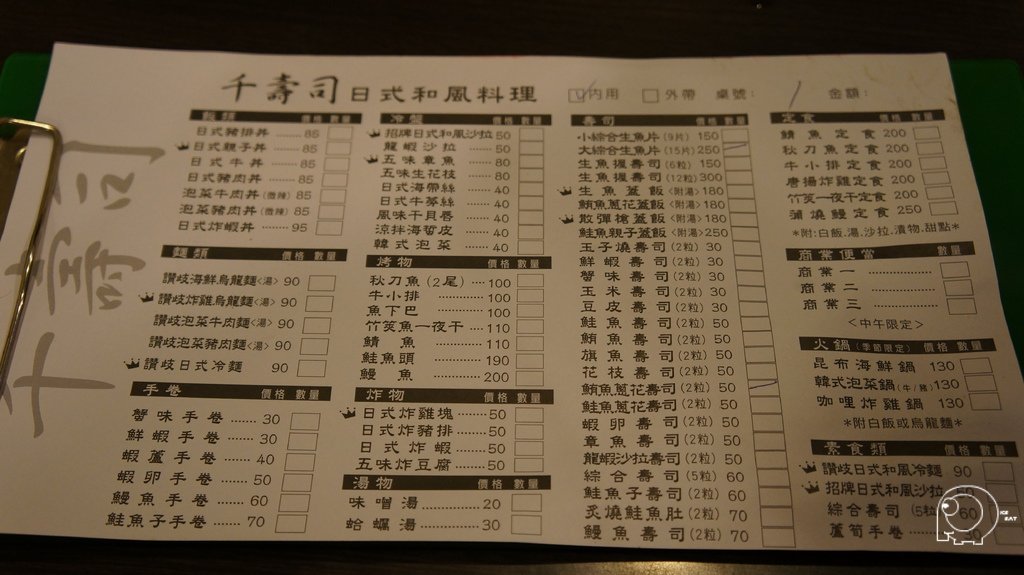 千壽司
千壽司 日式和風料理 內用 外帶 桌號： 金額：
飯類 價格 數量
日式豬排丼 ……… 85
日式親子丼 ……… 85
日式牛丼 ……… 85
日式豬肉丼 ……… 85
泡菜牛肉丼(微辣) 85
泡菜豬肉丼(微辣) 85
日式炸蝦丼 ……… 95
麵類 價格 數量
讚岐海鮮烏龍麵<湯> 90
讚岐炸雞烏龍麵<湯> 90
讚岐泡菜牛肉麵<湯> 90
讚岐泡菜豬肉麵<湯> 90
讚岐日式冷麵 90
手卷 價格 數量
蟹味手卷 ……… 30
鮮蝦手卷 ……… 30
蝦蘆手卷 ……… 40
蝦卵手卷 ……… 50
鰻魚手卷 ……… 60
鮭魚子手卷 ……… 70
冷盤 價格 數量
招牌日式和風沙拉 50
龍蝦沙拉 ……… 50
五味章魚 ……… 80
五味生花枝 ……… 80
日式海帶絲 ……… 40
日式牛蒡絲 ……… 40
風味干貝唇 ……… 40
涼拌海哲皮 ……… 40
韓式泡菜 ……… 40
烤物 價格 數量
秋刀魚(2尾) ……… 100
牛小排 ……… 100
魚下巴 ……… 100
竹筴魚一夜干 ……… 110
鯖魚 ……… 110
鮭魚頭 ……… 190
鰻魚 ……… 200
炸物 價格 數量
日式炸雞塊 ……… 50
日式炸豬排 ……… 50
日式炸蝦 ……… 50
五味炸豆腐 ……… 50
湯物 價格 數量
味噌湯 ……… 20
蛤蠣湯 ……… 30
壽司 價格 數量
小綜合生魚片(9片) 150
大綜合生魚片(15片) 250
生魚握壽司(6粒) 150
生魚握壽司(12粒) 300
生魚蓋飯<附湯> 180
鮪魚蔥花蓋飯<附湯> 180
散彈槍蓋飯<附湯> 180
鮭魚親子蓋飯<附湯> 250
玉子燒壽司(2粒) 30
鮮蝦壽司(2粒) 30
蟹味壽司(2粒) 30
玉米壽司(2粒) 30
豆皮壽司(2粒) 30
鮭魚壽司(2粒) 50
鮪魚壽司(2粒) 50
旗魚壽司(2粒) 50
花枝壽司(2粒) 50
鮪魚蔥花壽司(2粒) 50
鮭魚蔥花壽司(2粒) 50
蝦卵壽司(2粒) 50
章魚壽司(2粒) 50
龍蝦沙拉壽司(2粒) 50
綜合壽司(5粒) 60
鮭魚子壽司(2粒) 60
炙燒鮭魚肚(2粒) 70
鰻魚壽司(2粒) 70
定食 價格 數量
鯖魚定食 200
秋刀魚定食 200
牛小排定食 200
唐揚炸雞定食 200
竹筴一夜干定食 200
蒲燒鰻定食 250
*附:白飯.湯.沙拉.漬物.甜點*
商業便當 價格 數量
商業一 ………
商業二 ………
商業三 ………
<中午限定>
火鍋(季節限定) 價格 數量
昆布海鮮鍋 130
韓式泡菜鍋(牛/豬) 130
咖哩炸雞鍋 130
*附白飯或烏龍麵*
素食類 價格 數量
讚岐日式和風冷麵 90
招牌日式和風沙拉
綜合壽司(5粒) 60
蘆筍手卷 ……… 30
ICE EAT